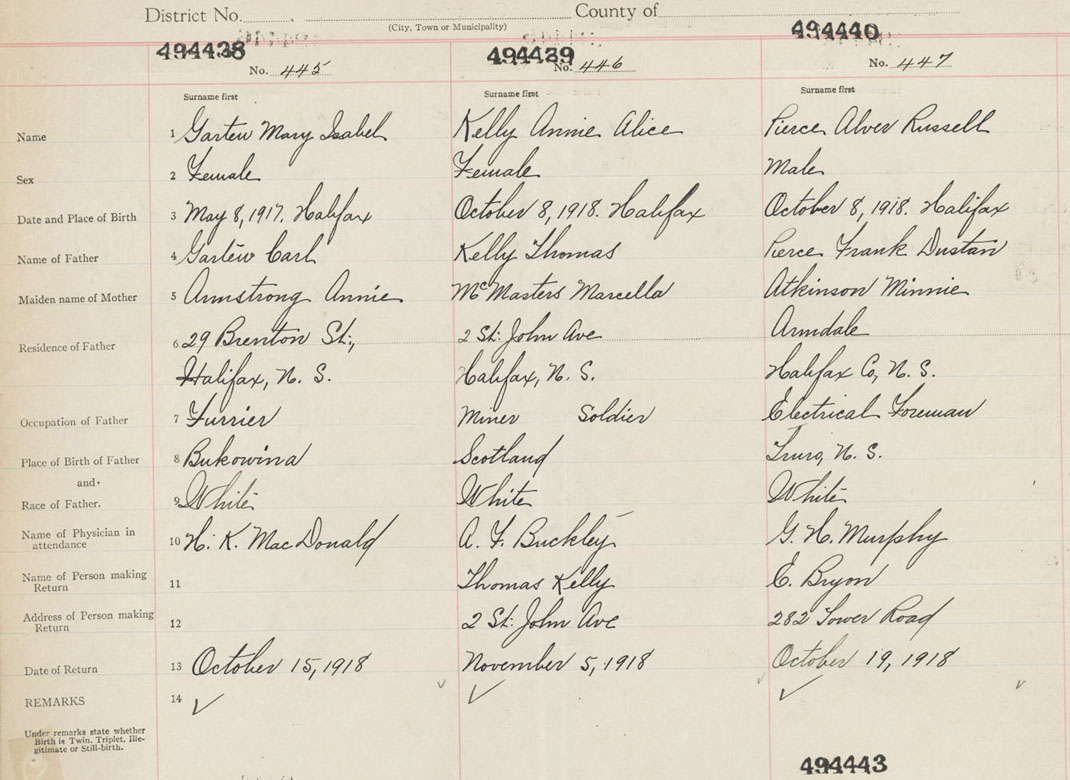 District No. County of
(City, Town or Municipality)
494438 494439 494440
No. 445 No. 446 No. 447
Surname first Surname first Surname first
Name 1 Garten Mary Isabel Kelly Annie Alice Pierce Alver Russell
Sex 2 Female Female Male
Date and Place of Birth 3 May 8, 1917. Halifax October 8, 1918. Halifax October 8, 1918. Halifax
Name of Father 4 Garten Carl Kelly Thomas Pierce Frank Dustan
Maiden name of Mother 5 Armstrong Annie McMasters Marcella Atkinson Minnie
Residence of Father 6 29 Brenton St., 2 St. John Ave Armdale
Halifax, N. S. Halifax, N. S. Halifax Co, N. S.
Occupation of Father 7 Furrier Miner Soldier Electrical Foreman
Place of Birth of Father 8 Bukowina Scotland Truro, N. S.
and
Race of Father. 9 White White White
Name of Physician in
attendance 10 H. K. MacDonald A. F. Buckley G. H. Murphy
Name of Person making
Return 11 Thomas Kelly E. Bryon
Address of Person making
Return 12 2 St. John Ave 282 Tower Road
Date of Return 13 October 15, 1918 November 5, 1918 October 19, 1918
REMARKS 14 ✓ ✓ ✓
Under remarks state whether
Birth is Twin, Triplet, Ille-
gitimate or Still-birth.
494443